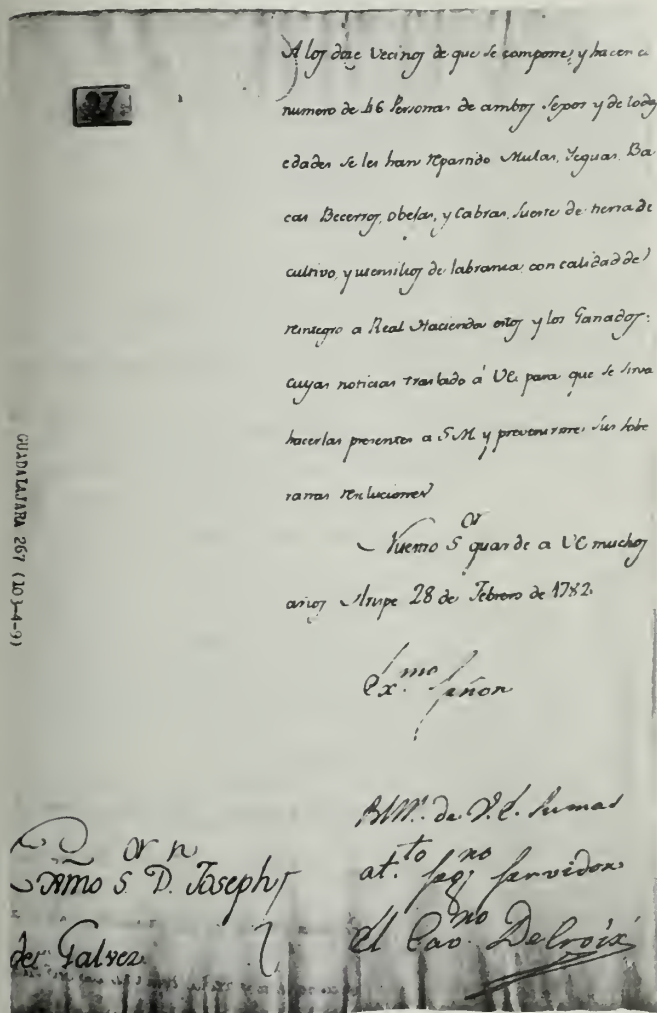 37
A los doze Vecinos de que se compone, y hacen el
numero de 46 Personas de ambos Sexos y de todas
edades se les han repartido Mulas, Yeguas, Ba
cas Becerros, Obejas, y Cabras, suerte de tierra de
cultivo, y utensilios de labranza con calidad de
reintegro a Real Hacienda estos y los Ganados:
cuyas noticias traslado á VE. para que se sirva
hacerlas presentes a S.M. y prevenirme sus sobe
ranas resoluciones
Nuestro Sor guarde a VE muchos
años Arispe 28 de Febrero de 1782.
Exmo Señor
BLM. de V.E. su mas
at.to seg.no servidor
El Cavno De Croix
Exmo Sor Dn Joseph
de Galvez
GUADALAJARA 267 (103-4-9)